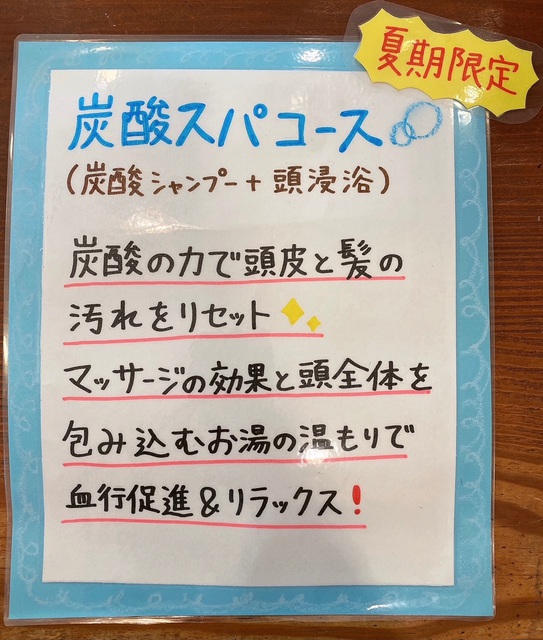 夏期限定
炭酸スパコース
(炭酸シャンプー+頭浸浴)
炭酸の力で頭皮と髪の
汚れをリセット✨
マッサージの効果と頭全体を
包み込むお湯の温もりで
血行促進&リラックス!